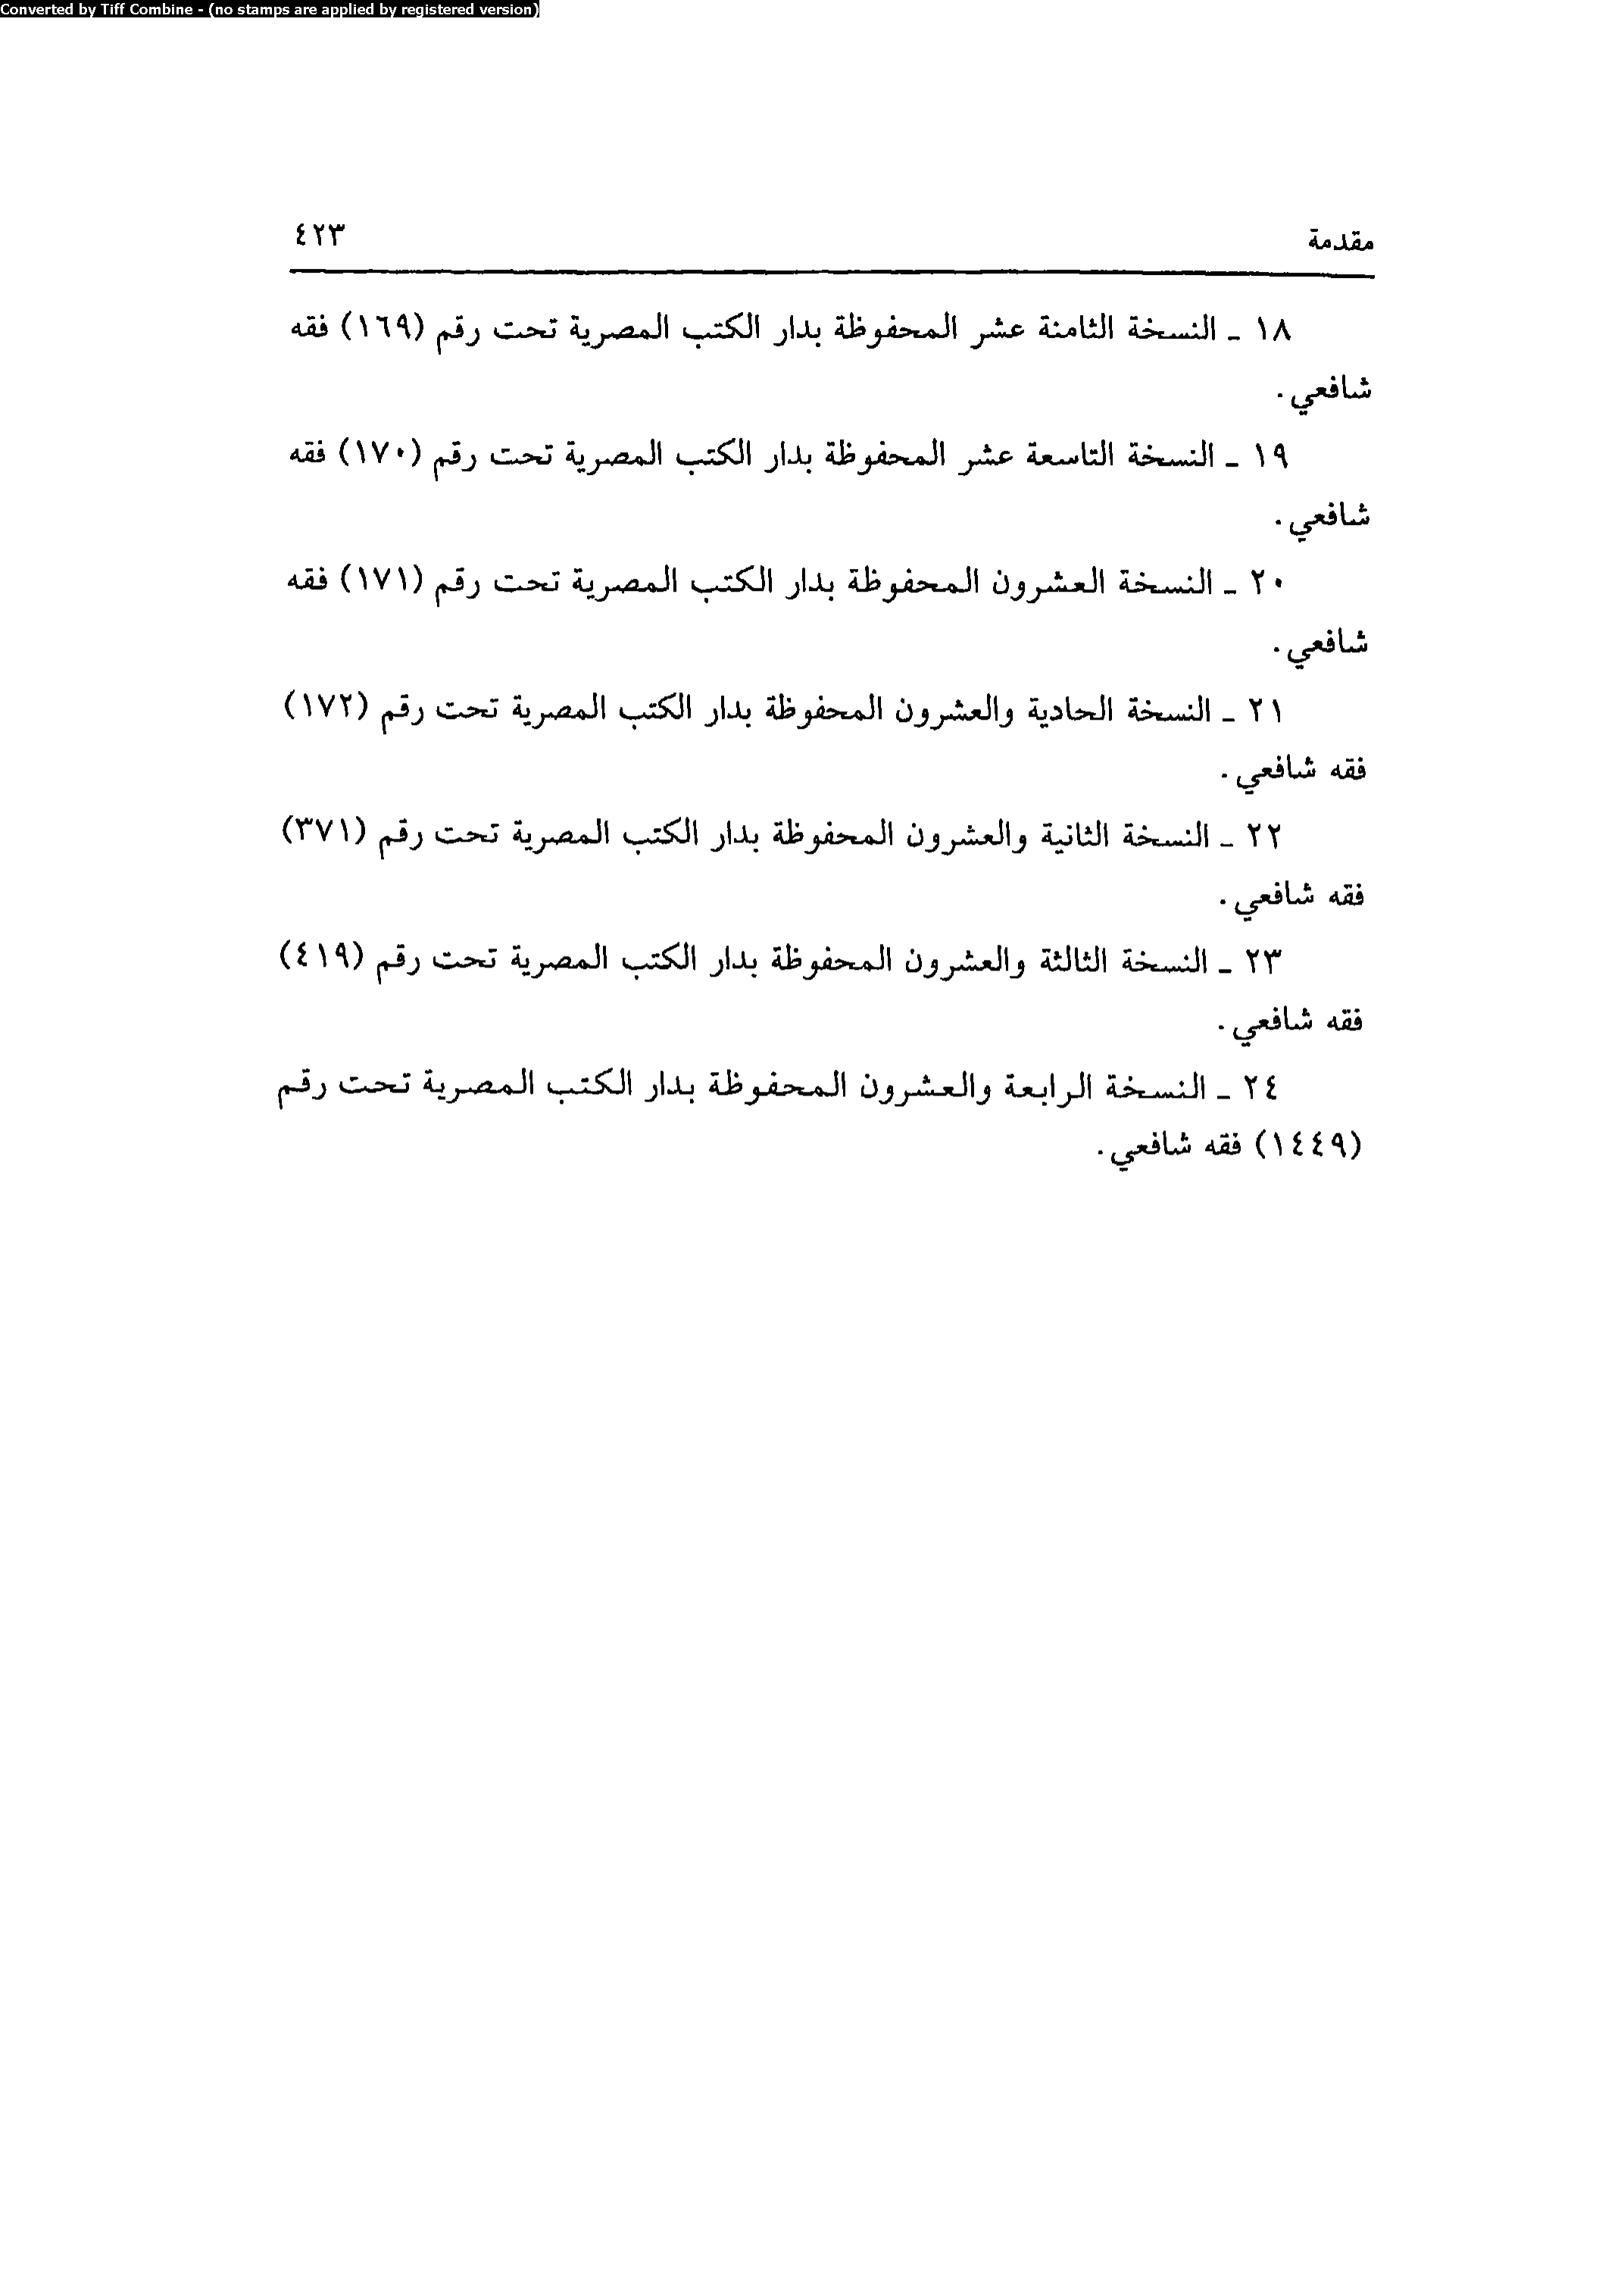 Converted by Tiff Combine - (no stamps are applied by registered version)
مقدمة ٤٢٣
١٨ ـ النسخة الثامنة عشر المحفوظة بدار الكتب المصرية تحت رقم (١٦٩) فقه
شافعي .
١٩ ـ النسخة التاسعة عشر المحفوظة بدار الكتب المصرية تحت رقم (١٧٠) فقه
شافعي .
٢٠ ـ النسخة العشرون المحفوظة بدار الكتب المصرية تحت رقم (١٧١) فقه
شافعي .
٢١ ـ النسخة الحادية والعشرون المحفوظة بدار الكتب المصرية تحت رقم (١٧٢)
فقه شافعي .
٢٢ ـ النسخة الثانية والعشرون المحفوظة بدار الكتب المصرية تحت رقم (٣٧١)
فقه شافعي .
٢٣ ـ النسخة الثالثة والعشرون المحفوظة بدار الكتب المصرية تحت رقم (٤١٩)
فقه شافعي .
٢٤ ـ النسخة الرابعة والعشرون المحفوظة بدار الكتب المصرية تحت رقم
(١٤٤٩) فقه شافعي .